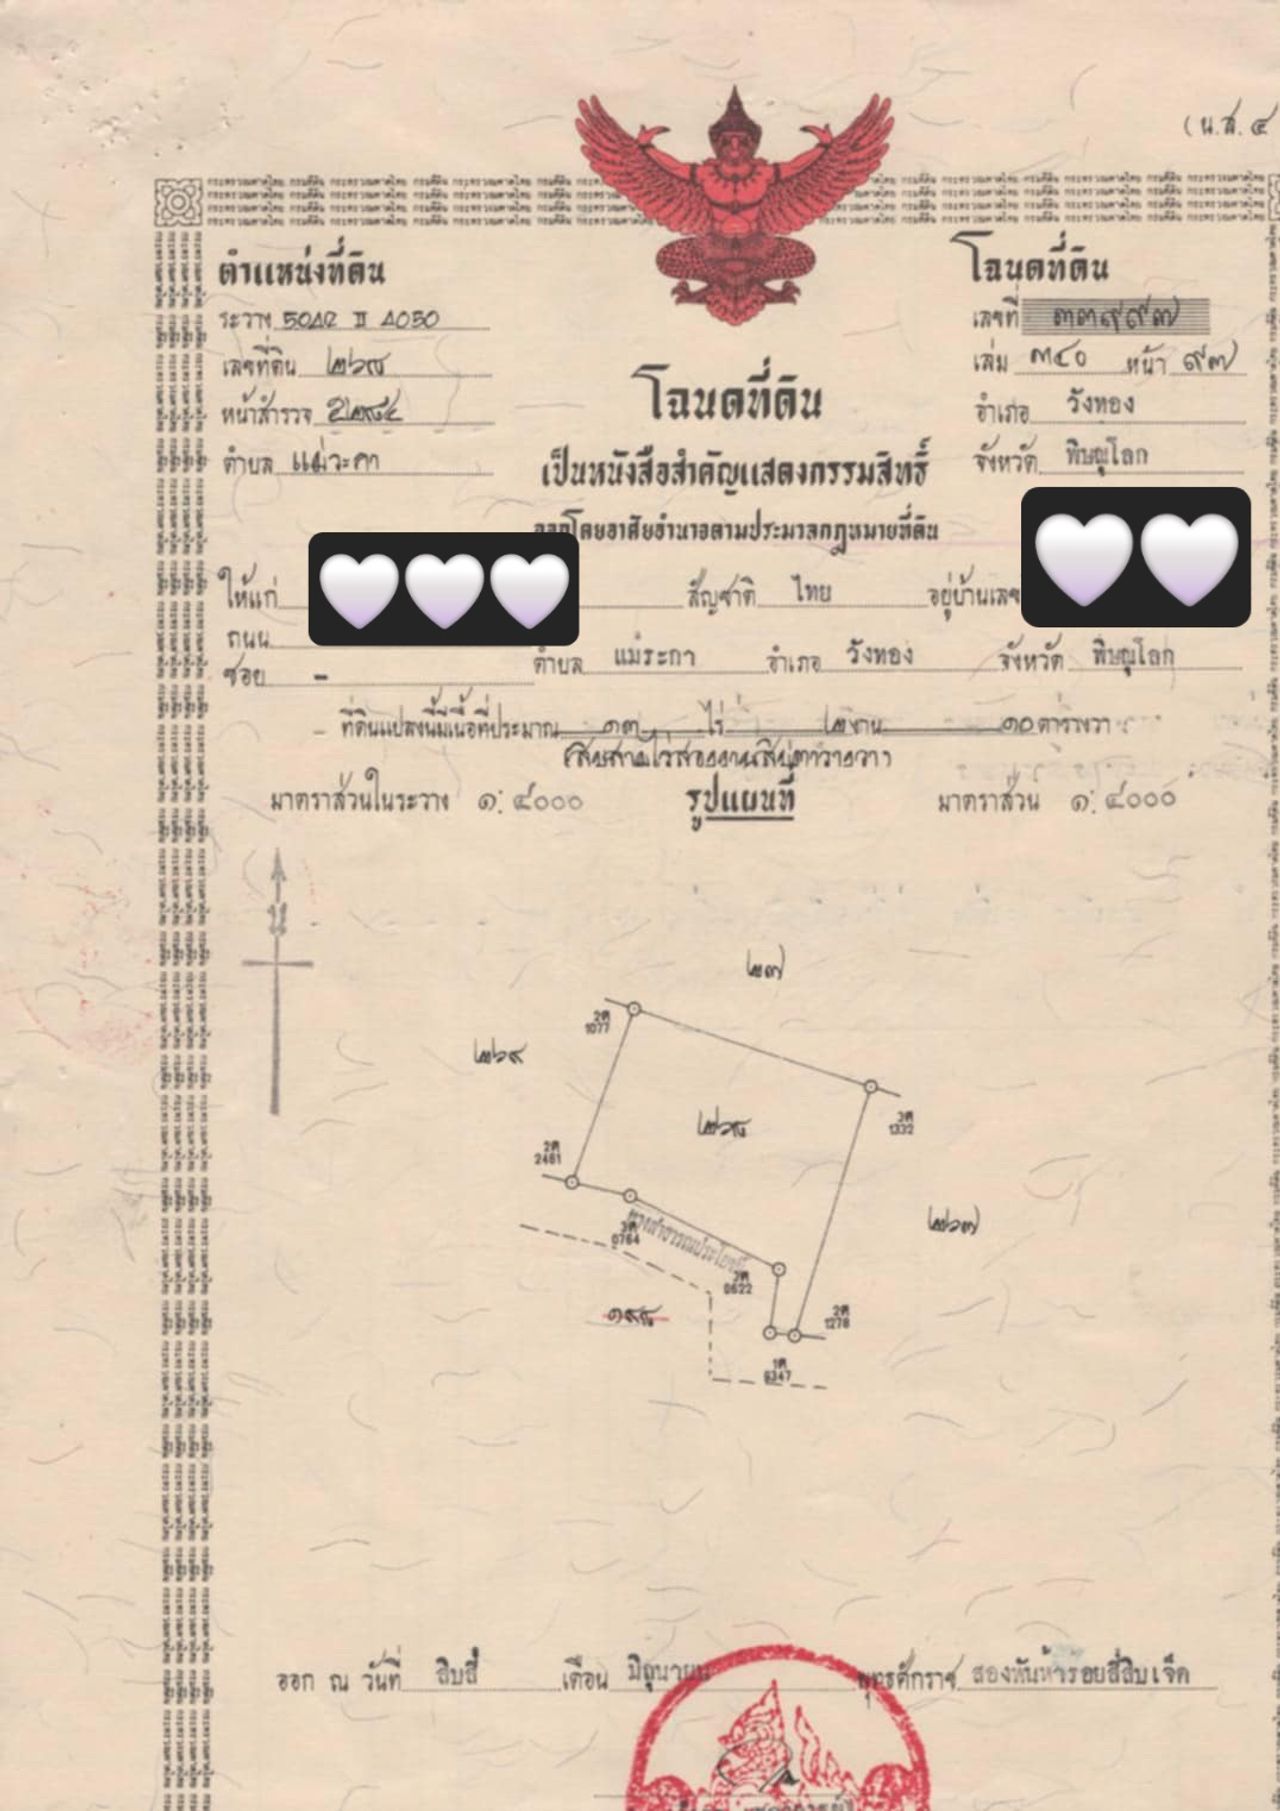 (น.ส. ๔
ตำแหน่งที่ดิน
ระวาง 5042 II 4050
เลขที่ดิน ๒๖๘
หน้าสำรวจ ๒๒๘๔
ตำบล แม่ระกา
โฉนดที่ดิน
เลขที่ ๓๓๙๙๗
เล่ม ๓๔๐ หน้า ๙๗
อำเภอ วังทอง
จังหวัด พิษณุโลก
โฉนดที่ดิน
เป็นหนังสือสำคัญแสดงกรรมสิทธิ์
ออกโดยอาศัยอำนาจตามประมวลกฎหมายที่ดิน
ให้แก่ สัญชาติ ไทย อยู่บ้านเลข
ถนน
ซอย - ตำบล แม่ระกา อำเภอ วังทอง จังหวัด พิษณุโลก
ที่ดินแปลงนี้มีเนื้อที่ประมาณ ๑๓ ไร่ ๒ งาน ๑๐ ตารางวา
(สิบสามไร่สองงานสิบตารางวา)
มาตราส่วนในระวาง ๑: ๔๐๐๐ รูปแผนที่ มาตราส่วน ๑: ๔๐๐๐
น
๒๓๗
2ศ
1077
๒๖๙
3ศ
1332
๒๖๘
2ศ
2461
๒๖๗
ทางสาธารณประโยชน์
3ศ
0764
0622
๑๙๘
2ศ
1278
1ศ
6347
ออก ณ วันที่ สิบสี่ เดือน มิถุนายน พุทธศักราช สองพันห้าร้อยสี่สิบเจ็ด